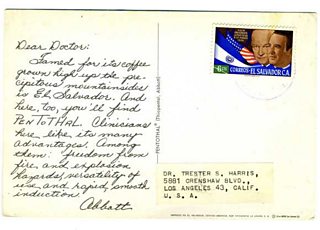 Dear Doctor:
Famed for its coffee
grown high up the pre-
cipitous mountainsides
is El Salvador. And
here, too, you'll find
PENTOTHAL. Clinicians
here like its many
advantages. Among
them: freedom from
fire and explosion
hazards, versatility of
use and rapid, smooth
induction.
Abbott
PENTOTHAL® (Thiopental, Abbott)
CORREOS-EL SALVADOR.C.A.
DR. TRESTER S. HARRIS,
5881 CRENSHAW BLVD.,
LOS ANGELES 43, CALIF.
U. S. A.